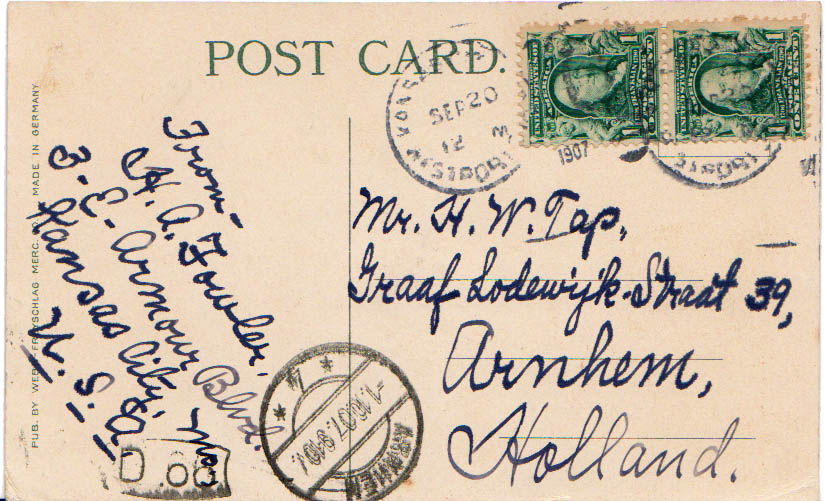 POST CARD.
SEP 20
12
1907
1
1
From-
H. A. Fowler.
3-E-Armour Blvd.
Kansas City, Mo.
U. S. A.
Mr. H. W. Tap,
Graaf Lodewijk-Straat 39,
Arnhem,
Holland.
ARNHEM
-1.10.07.9-10V.
PUB. BY MERC. CO. MADE IN GERMANY.